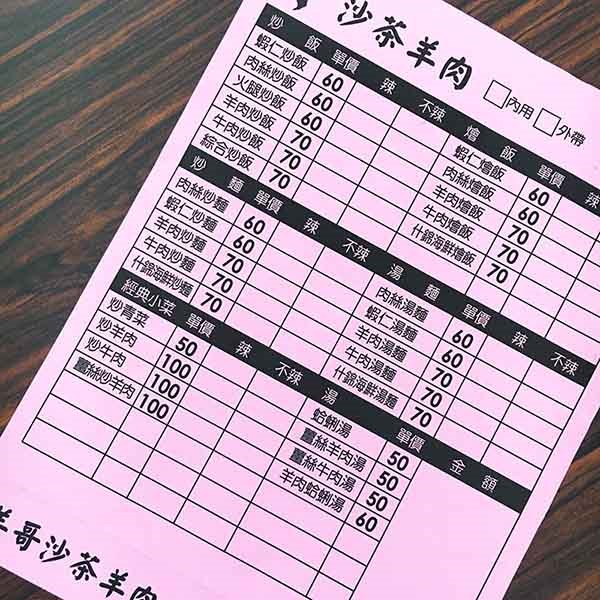 沙茶羊肉
內用 外帶
炒飯 單價 辣 不辣
蝦仁炒飯 60
肉絲炒飯 60
火腿炒飯 60
羊肉炒飯 70
牛肉炒飯 70
綜合炒飯 70
燴飯 單價 辣
蝦仁燴飯 60
肉絲燴飯 60
羊肉燴飯 70
牛肉燴飯 70
什錦海鮮燴飯 70
炒麵 單價 辣 不辣
肉絲炒麵 60
蝦仁炒麵 60
羊肉炒麵 70
牛肉炒麵 70
什錦海鮮炒麵 70
湯麵 單價 辣 不辣
肉絲湯麵 60
蝦仁湯麵 60
羊肉湯麵 70
牛肉湯麵 70
什錦海鮮湯麵 70
經典小菜 單價 辣 不辣
炒青菜 50
炒羊肉 100
炒牛肉 100
薑絲炒羊肉 100
湯 單價 金額
蛤蜊湯 50
薑絲羊肉湯 50
薑絲牛肉湯 50
羊肉蛤蜊湯 60
羊哥沙茶羊肉